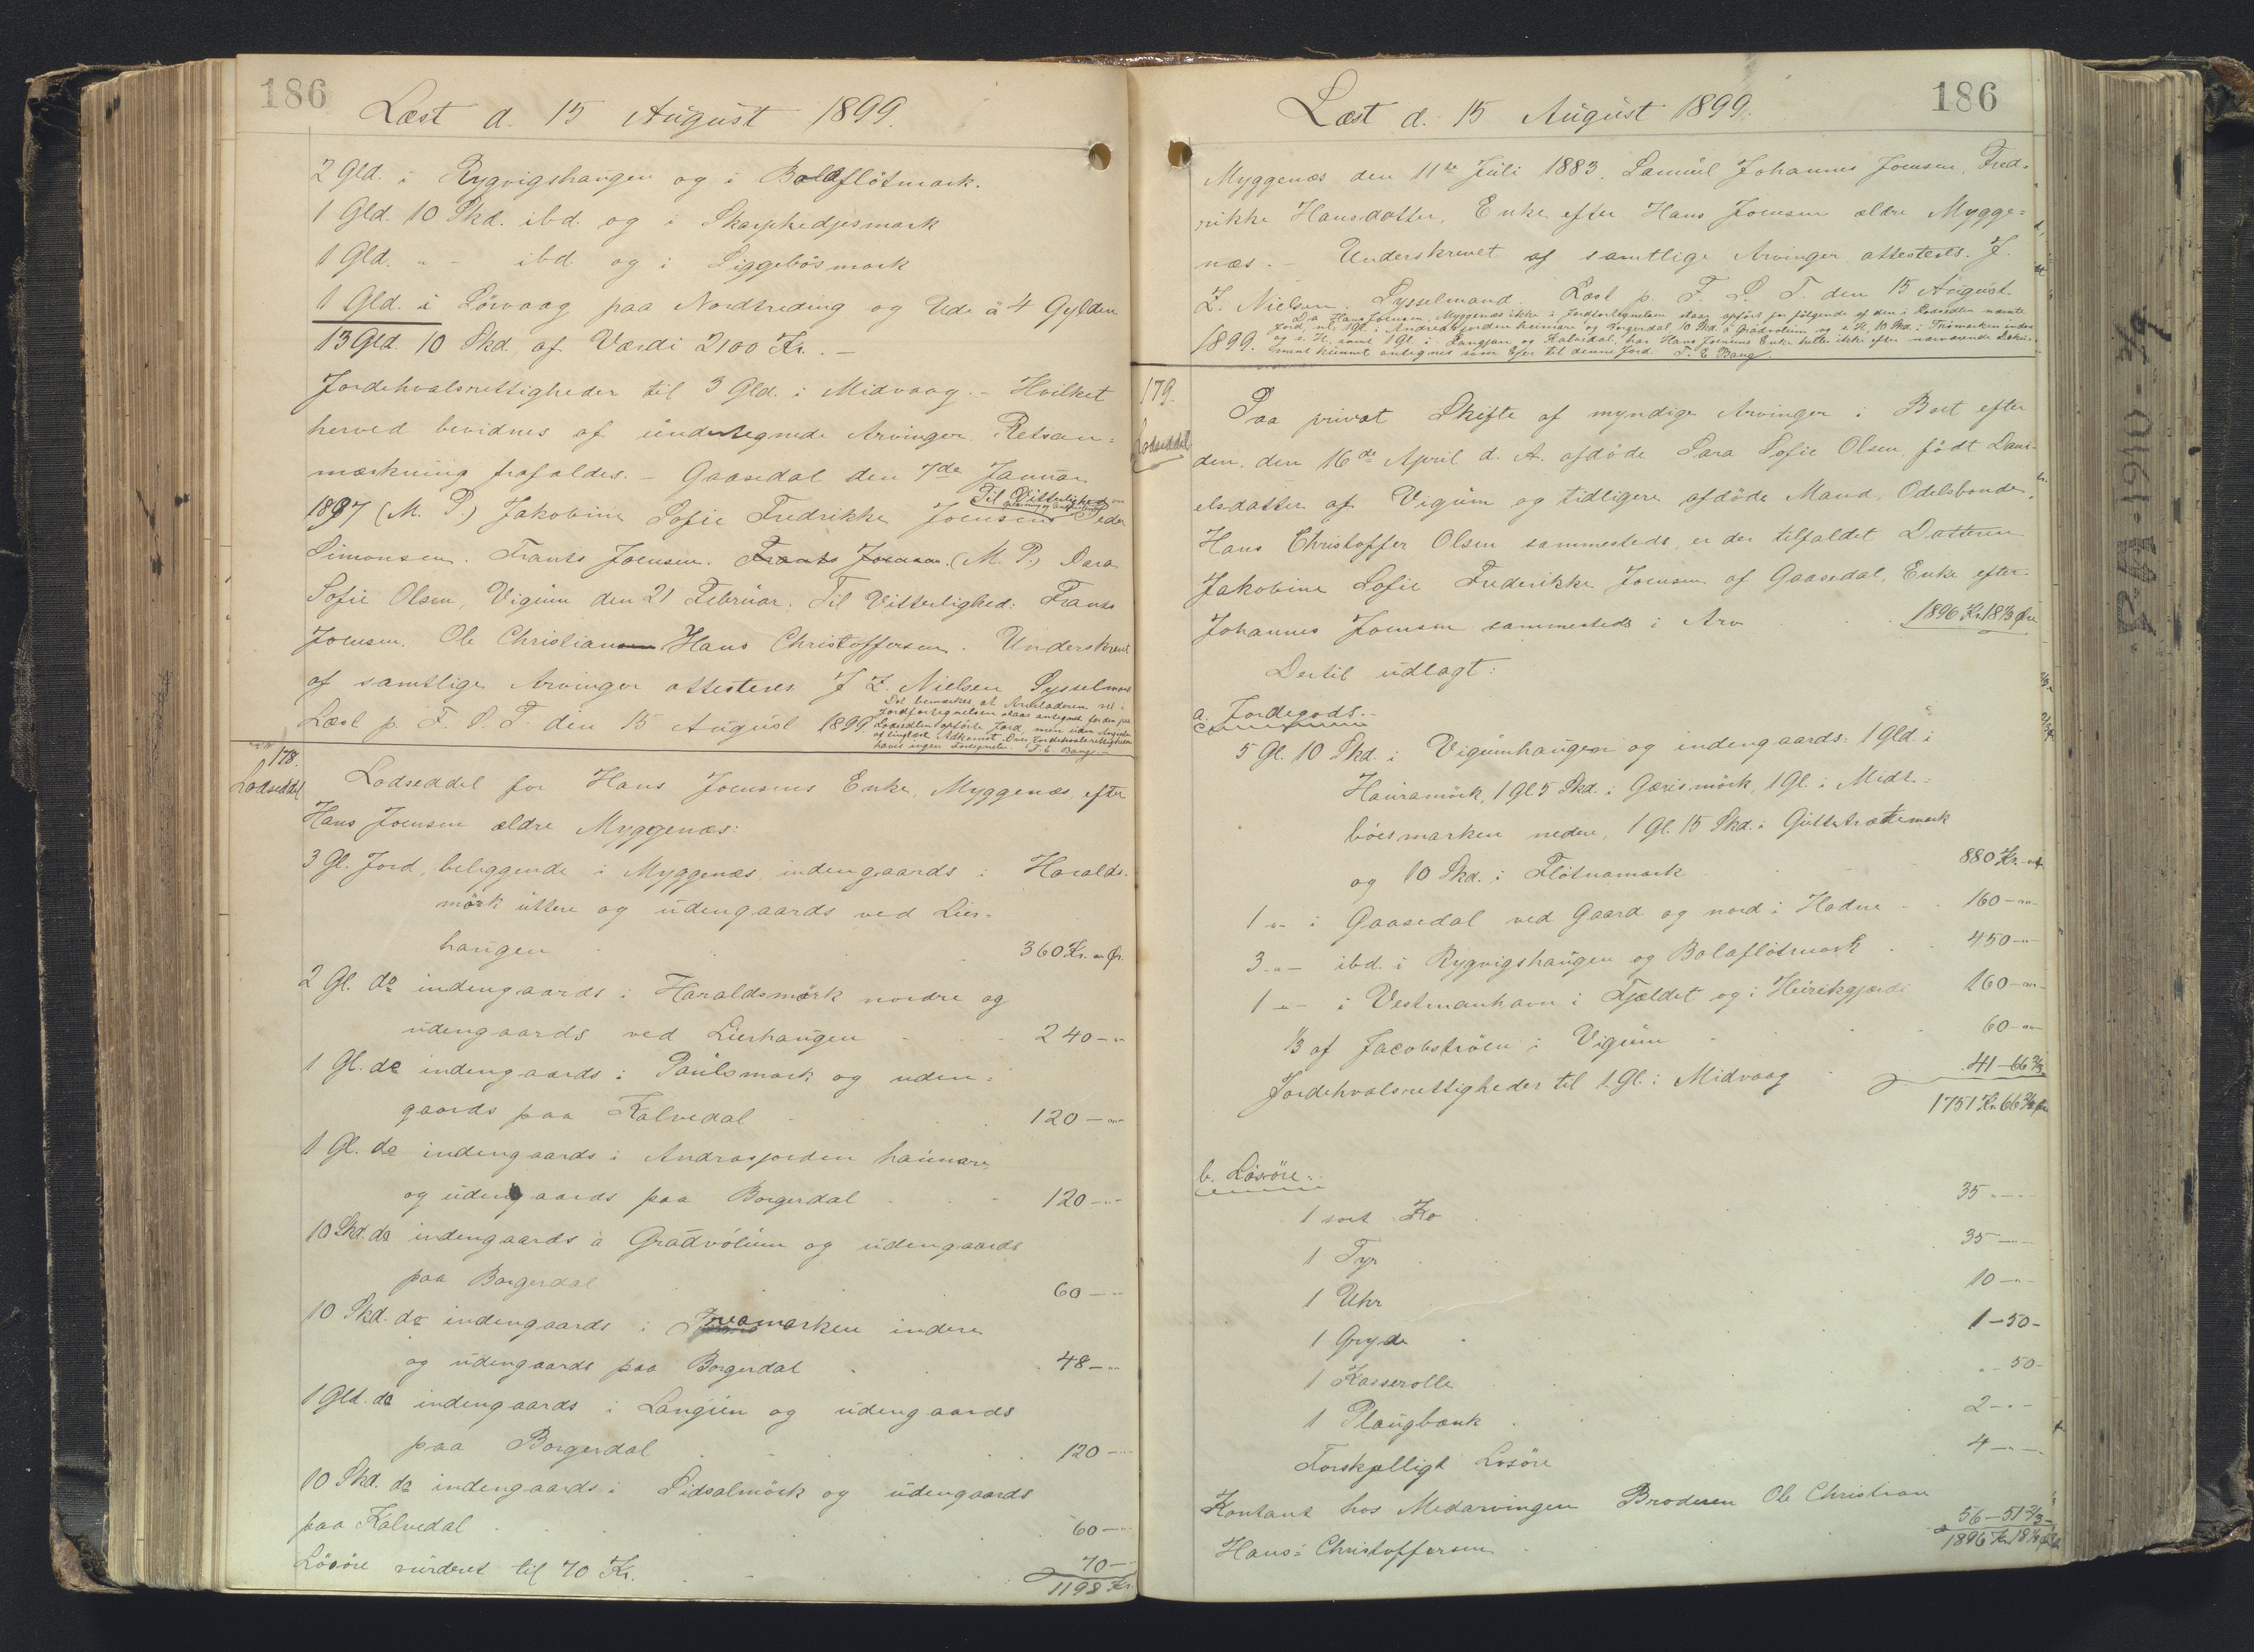 186
Læst d. 15 August 1899.
2 Gld. i Rygvigshaugen og i Bolaflötmark.
1 Gld. 10 Skd. ibd. og i Skarphedjesmark
1 Gld. " - ibd. og i Siggebösmark
1 Gld. i Sörvaag paa Nordtreding og Ude à 4 Gylden
13 Gld. 10 Skd. af Værdi 2100 Kr. -
Jordehvalsrettigheder til 3 Gld. i Midvaag. - Hvilket
herved bevidnes af undertegnede Arvinger. Retsan=
mærkning frafaldes. - Gaasedal den 7de Januar
Til Vitterlighed
1897 (M. P.) Jakobine Sofie Fredrikke Joensen Peder
Simonsen. Frants Joensen. Frants Joensen. (M. P.) Sara
Sofie Olsen, Vigum den 21 Februar. Til Vitterlighed: Frants
Joensen. Ole Christiansen Hans Christoffersen. Underskrevet
af samtlige Arvinger attesteres J Z. Nielsen Sysselmand
Det bemærkes, at Arveladeren vel i
Jordfortegnelsen staar antegnet for den paa
Læst p. F. S. T. den 15 August 1899. Lodsedlen opførte Jord, men uden Angivelse
af tinglæst Adkomst. Over Jordehvalsrettigheder
haves ingen Fortegnelse. T. E. Bang
178.
Lodseddel
Lodseddel for Hans Joensens Enke, Myggenæs, efter
Hans Joensen ældre Myggenæs:
3 Gl. Jord, beliggende i Myggenæs indengaards i Haralds-
mörk uttere og udengaards ved Lier-
haugen 360 Kr. " Ør.
2 Gl. do indengaards i Haraldsmörk nordre og
udengaards ved Lierhaugen 240 - "
1 Gl. do indengaards i Paulsmark og uden=
gaards paa Kalvedal 120 - "
1 Gl. do indengaards i Andrasjorden haimare
og udengaards paa Borgerdal 120 - "
10 Skd. do indengaards à Gradvölum og udengaards
paa Borgerdal 60 - "
10 Skd. do indengaards i Trömarken indere
og udengaards paa Borgerdal 48 - "
1 Gld. do indengaards i Langjen og udengaards
paa Borgerdal 120 - "
10 Skd. do indengaards i Sidsalmörk og udengaards
paa Kalvedal 60 - "
Lösöre vurderet til 70 Kr. 70 -
1198 Kr.
186
Læst d. 15 August 1899.
Myggenæs den 11te Juli 1883. Samuel Johannes Joensen, Fred-
rikke Hansdatter, Enke efter Hans Joensen ældre Mygge=
næs. - Underskrevet af samtlige Arvinger attesteres. J.
Z. Nielsen. Sysselmand. Læst p. F. S. T. den 15 August
Da Hans Joensen, Myggenæs ikke i Jordfortegnelsen staar opført for følgende af den i Lodsedlen nævnte
Jord, nl. 1 Gl. i Andreasjorden heimare og Borgerdal, 10 Skd. i Gradvolum og s. St., 10 Skd. i Trömarken indere
1899. og s. St. samt 1 Gl. i Langjan og Kalvedal, har Hans Joensens Enke heller ikke efter nærværende Doku-
ment kunnet antegnes som Ejer til denne Jord. T. E Bang
179.
Lodseddel
Paa privat Skifte af myndige Arvinger i Boet efter
den, den 16de April d. A. afdöde Sara Sofie Olsen, födt Dani-
elsdatter af Vigum og tidligere afdöde Mand, Odelsbonde
Hans Christoffer Olsen sammesteds, er der tilfaldet Datteren
Jakobine Sofie Frederikke Joensen af Gaasedal, Enke efter
Johannes Joensen sammesteds i Arv 1896 Kr. 18 1/3 Øre
Dertil udlagt:
a. Jordegods.-
5 Gl. 10 Skd. i Vigumhaugen og indengaards: 1 Gld. i
Hauramörk, 1 Gl. 5 Skd. i Gærismörk, 1 Gl. i Midt-
böesmarken nedere, 1 Gl. 15 Skd. i Gullstrætemark
og 10 Skd. i Flötnamark 880 Kr. " Ør
1 - " - i Gaasedal ved Gaard og nord i Hadne 160 - " -
3 - " - ibd. i Rygvigshaugen og Bolaflötmark 450 - " -
1 - " - i Vestmanhavn i Fjældet og i Heirikgjærdi 160 - " -
1/3 af Jacobströen i Vigum 60 - " -
Jordehvalsrettigheder til 1 Gl. i Midvaag 41 - 66 2/3
1751 Kr. 66 2/3 Øre
b. Lösöre..
1 sort Ko 35 " - -
1 Tyr 35 - -
1 Uhr 10 - " -
1 Gryde 1 - 50 -
1 Kasserolle " - 50 -
1 Slaugbænk 2 - " -
Forskjelligt Lösöre 4 - " -
Kontant hos Medarvingen Broderen Ole Christian
Hans: Christoffersen 56 - 51 2/3 -
1896 Kr. 18 1/3 Øre